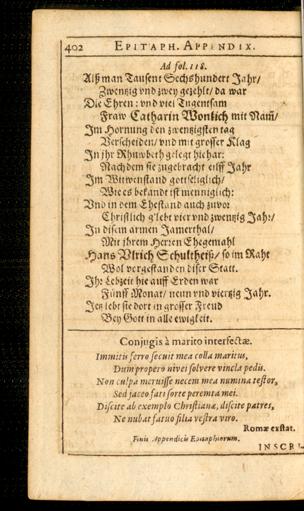 402 EPITAPH. APPENDIX.
Ad fol. 118.
Alß man Tausent Sechshundert Jahr/
Zwentzig vnd zwey gezehlt/ da war
Die Ehren: vnd viel Tugentsam
Fraw Catharin Wonlich mit Nam̃/
Im Hornung den zwentzigsten tag
Verscheiden/ vnd mit grosser Klag
In ihr Rhuwbeth gelegt hiehar:
Nachdem sie zugebracht eilff Jahr
Im Witwenstand gottseliglich/
Wie es bekandt ist menniglich:
Vnd in dem Ehestand auch zuvor
Christlich g'lebt vier vnd zwentzig Jahr/
In disem armen Jamerthal/
Mit ihrem Herren Ehegemahl
Hans Vlrich Schultheiß/ so im Raht
Wol vorgestanden diser Statt.
Ihr Lebzeit hie auff Erden war
Fünff Monat/ neun vnd viertzig Jahr.
Jetz lebt sie dort in grosser Frewd
Bey Gott in alle ewigkeit.
Conjugis à marito interfectæ.
Immitis ferro secuit mea colla maritus,
Dum propero nivei solvere vincla pedis.
Non culpa meruisse necem mea numina testor,
Sed jaceo fati sorte peremta mei.
Discite ab exemplo Christianæ, discite patres,
Ne nubat fatuo filia vestra viro.
Romæ exstat.
Finis Appendicis Epitaphiorum.
INSCRI-